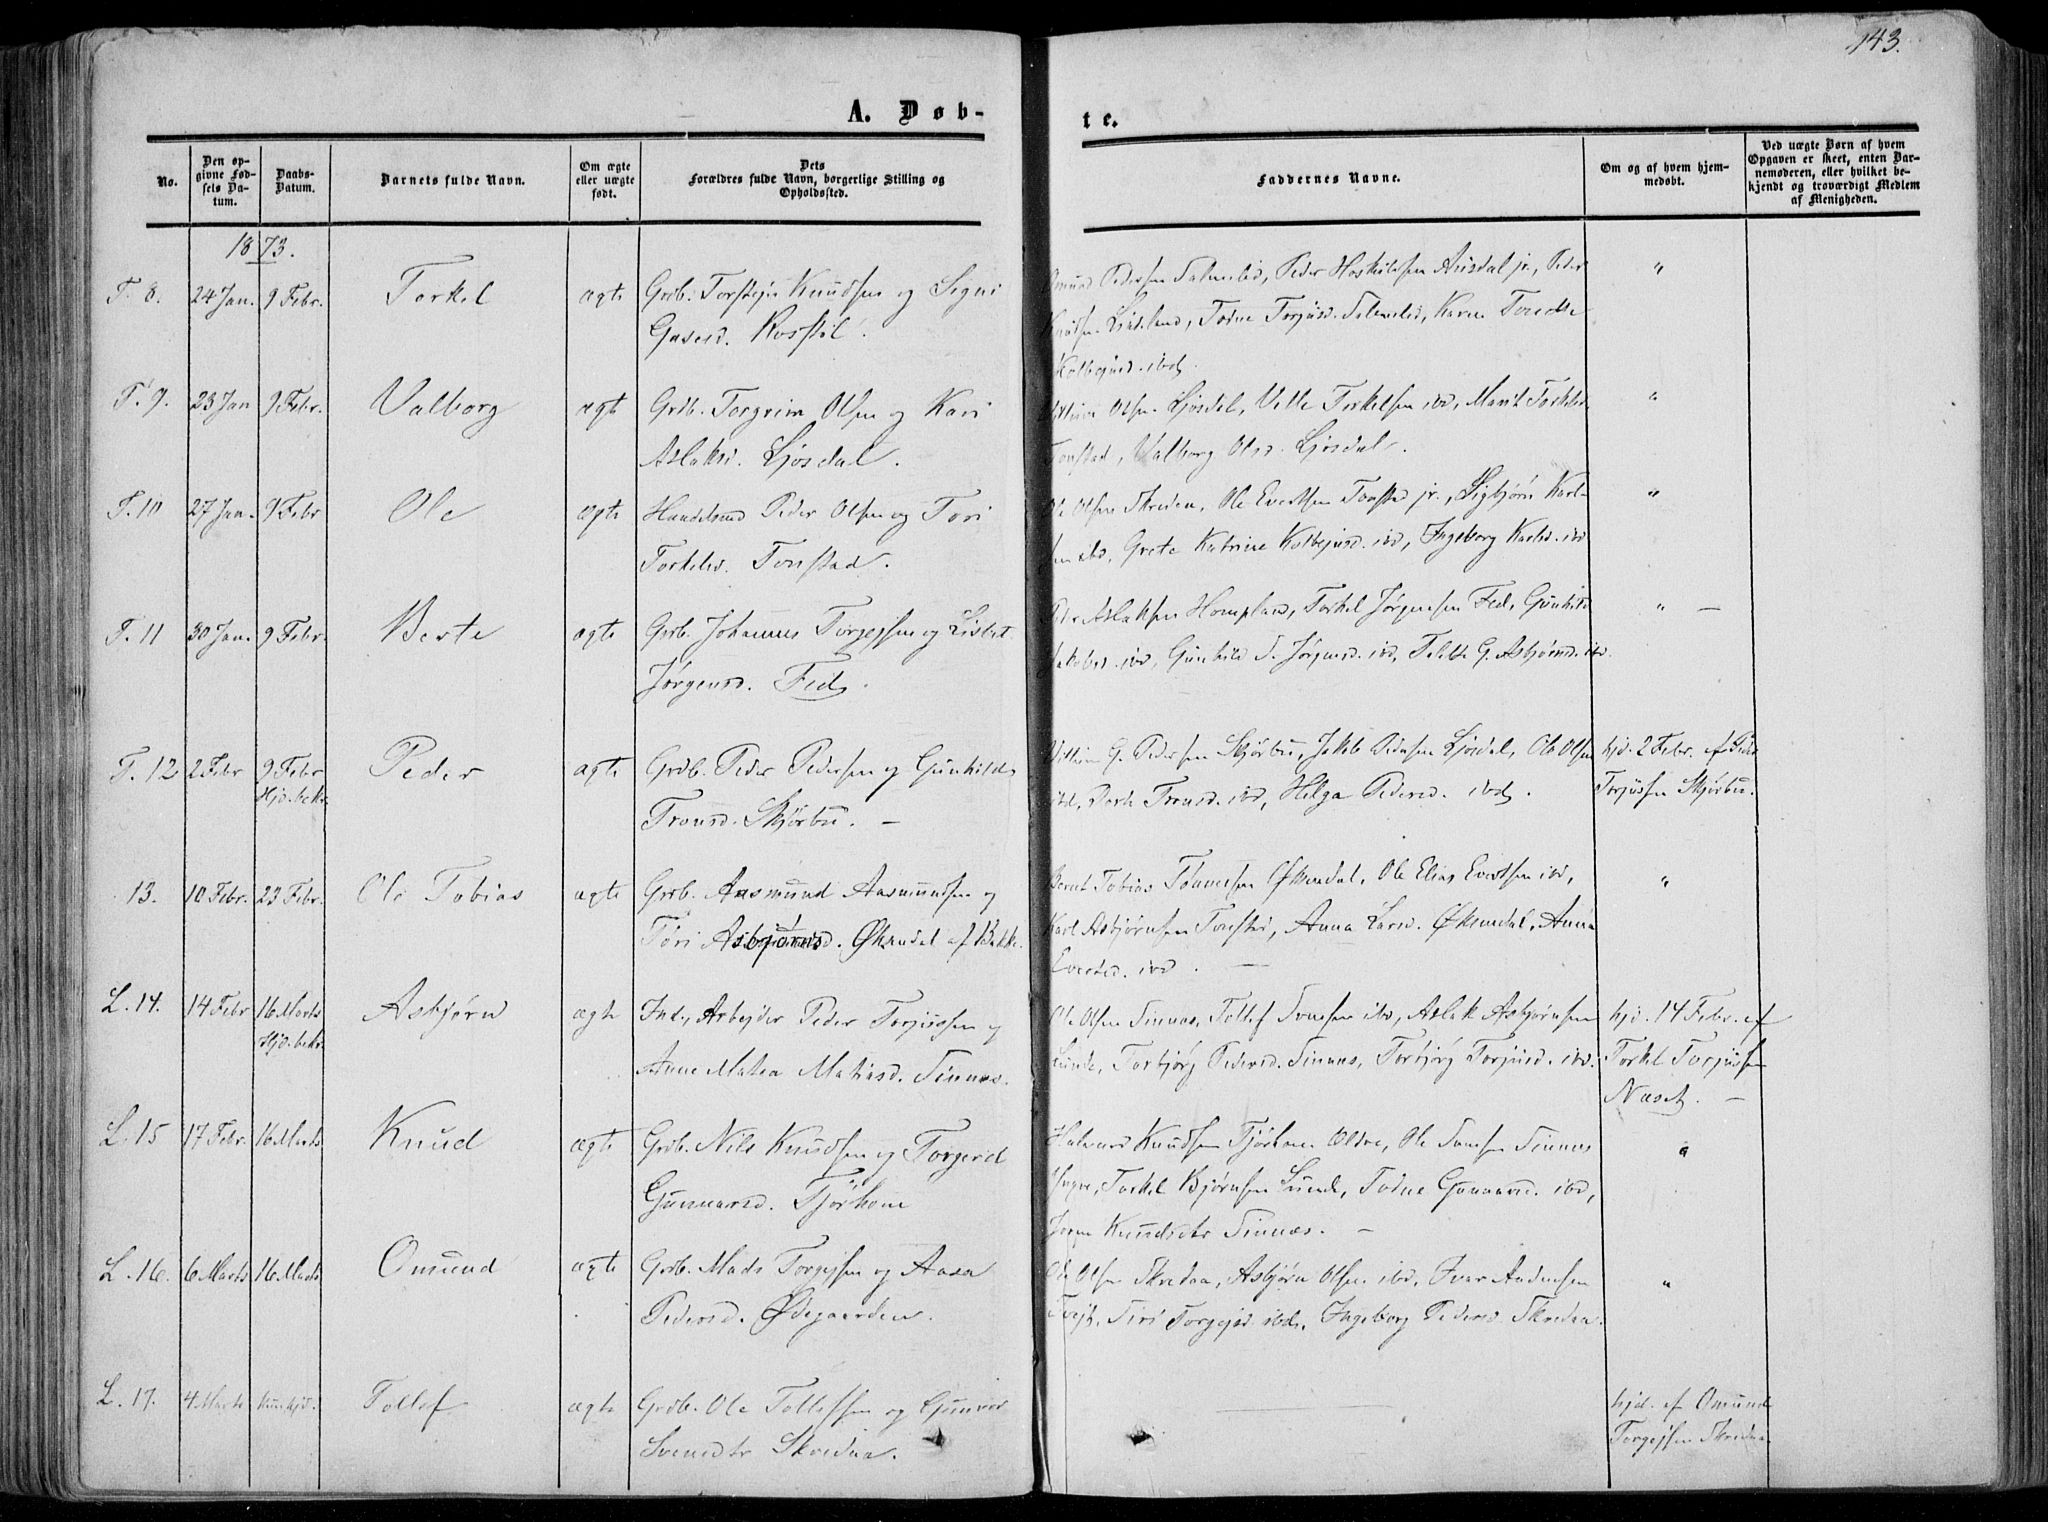 143.
A. Døb-
te.
No.
Den op-
givne Fød-
sels Da-
tum.
Daabs-
Datum.
Barnets fulde Navn.
Om ægte
eller uægte
født.
Dets
Forældres fulde Navn, borgerlige Stilling og
Opholdssted.
Faddernes Navne.
Om og af hvem hjem-
medøbt.
Ved uægte Børn af hvem
Opgaven er skeet, enten Bar-
nemoderen, eller hvilket be-
kjendt og troværdigt Medlem
af Menigheden.
1873.
T. 8. 24 Jan. 9 Febr. Torkel ægte Grdb. Torstejn Knudsen og Signi
Rosstøl.
Pedersen Salmelid, Peder Hoskildsen Ausdal jr., Peder
Todne Torjusd. Salmelid, Karen Tonette
Kolbejnsd. ibd.
"
T. 9. 23 Jan 9 Febr. Valborg ægte Grdb. Torgrim Olsen og Kari
Aslaksd. Ljosdal.
Olsen Ljosdal, Torkelsen ibd, Marit Torkelsd.
Tonstad, Valborg Olsd. Ljosdal.
"
T. 10 27 Jan. 9 Febr Ole ægte Handelsmd Peder Olsen og Tori
Torkelsd. Tonstad.
Ole Olsen Skredaa, Ole Evertsen Tonstad jr., Sigbjørn Karl-
sen ibd, Grete Katrine Kolbejnsd. ibd, Ingeborg Karlsd. ibd
"
T. 11 30 Jan. 9 Febr. Berte ægte Grdb. Johannes Torgejsen og Lisbet
Jørgensd. Fed.
Peder Aslaksen Hompland, Torkel Jørgensen Fed, Gunhild
Jakobsd. ibd, Gunhild S. Jørgensd. ibd, G. Asbjørnsd. ibd.
" —
T. 12 2 Febr 9 Febr Peder ægte Grdb. Peder Pedersen og Gunhild
Hjd. bekr.
Tronsd. Skjørbu. —
G. Pedersen Skjørbu, Jakob Pedersen Ljosdal, Ole Olsen
ibd, Tronsd. ibd, Helga Pedersd. ibd.
hjd. 2 Febr. af Peder
Torjussen Skjørbu.
13. 10 Febr. 23 Febr. Ole Tobias ægte Grdb. Aasmund Aasmundsen og
Tori Asbjørnsd. Øksendal af Bakke.
Bernt Tobias Tønnesen Øksendal, Ole Elias Evertsen ibd,
Karl Asbjørnsen Tonstad, Anna Larsd. Øksendal, Anna
Evertsd. ibd. —
"
L. 14. 14 Febr 16 Marts Asbjørn ægte Ind., Arbejder Peder Torjussen og
Hjd. bekr.
Anne Matea Matiasd. Sinnæs.
Ole Olsen Sinnæs, Tollef Svensen ibd, Aslak Asbjørnsen
Lunde, Torbjørg Pedersd. Sinnæs, Torbjørg Torjusd. ibd.
hjd. 14 Febr. af
Torkel Torjussen
Næset. —
L. 15 17 Febr. 16 Marts Knud ægte Grdb. Nils Knudsen og Torgerd
Gunnarsd. Tjørhom
Halvard Knudsen Tjørhom Ældre, Ole Svensen Sinnæs
Yngre, Torkel Bjørnsen Lunde, Todne Gunnarsd. ibd,
Knudsdtr Sinnæs. —
"
L. 16. 6 Marts 16 Marts Omund ægte Grdb. Mads Torgejsen og Aasa
Pedersd. Ødegaarden.
Ole Olsen Skredaa, Asbjørn Olsen ibd, Ivar Andersen
Siri Torgejsd. ibd, Ingeborg Pedersd. Skredaa.
"
L. 17. 4 Marts Kun hjd. Tollef ægte Grdb. Ole Tollefsen og Gunvor
Svensdtr Skredaa.
hjd. af Omund
Torgejsen Skredaa